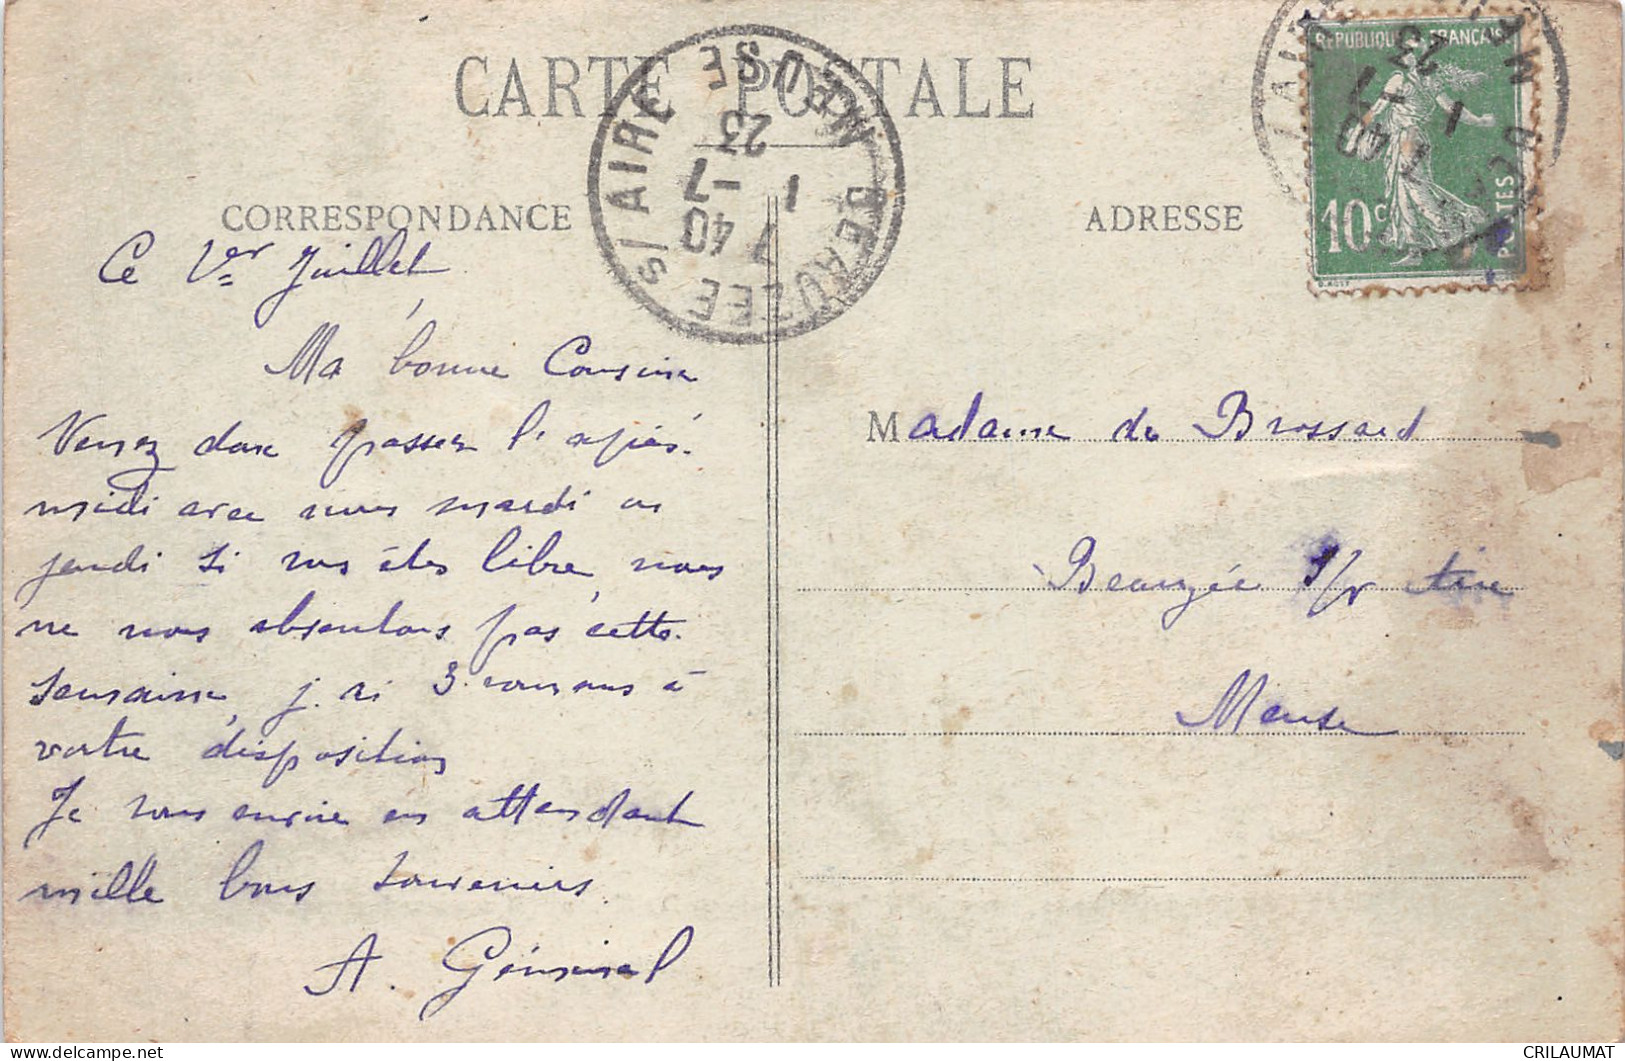 CARTE POSTALE
CORRESPONDANCE
Ce 1er Juillet
Ma bonne Cousine
Venez donc passer l'après-
midi avec nous mardi ou
jeudi si vos êtes libre, nous
ne nous absentons pas cette
semaine, j.ai 3 à
votre disposition
Je vous envoie en attendant
mille bons souvenirs
A.
BEAUZEE S/ AIRE MEUSE
1 40
1 -7
23
ADRESSE
REPUBLIQUE FRANÇAISE
10c
POSTES
Madame de Brossard
Beauzée s/r Aire
Meuse
CRILAUMAT